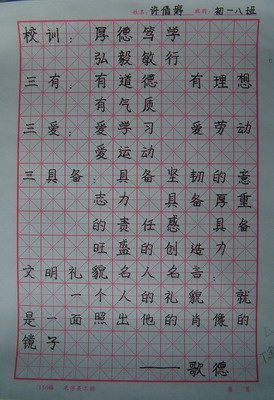 姓名: 许倩婷 班级: 初一八班
校训: 厚德笃学
弘毅敏行
三有: 有道德 有理想
有气质
三爱: 爱学习 爱劳动
爱运动
三具备: 具备坚韧的意
志力 具备厚重
的责任感 具备
旺盛的创造力
文明礼貌名人名言:
一个人的礼貌 就
是一面照出他的肖像的
镜子
——歌德